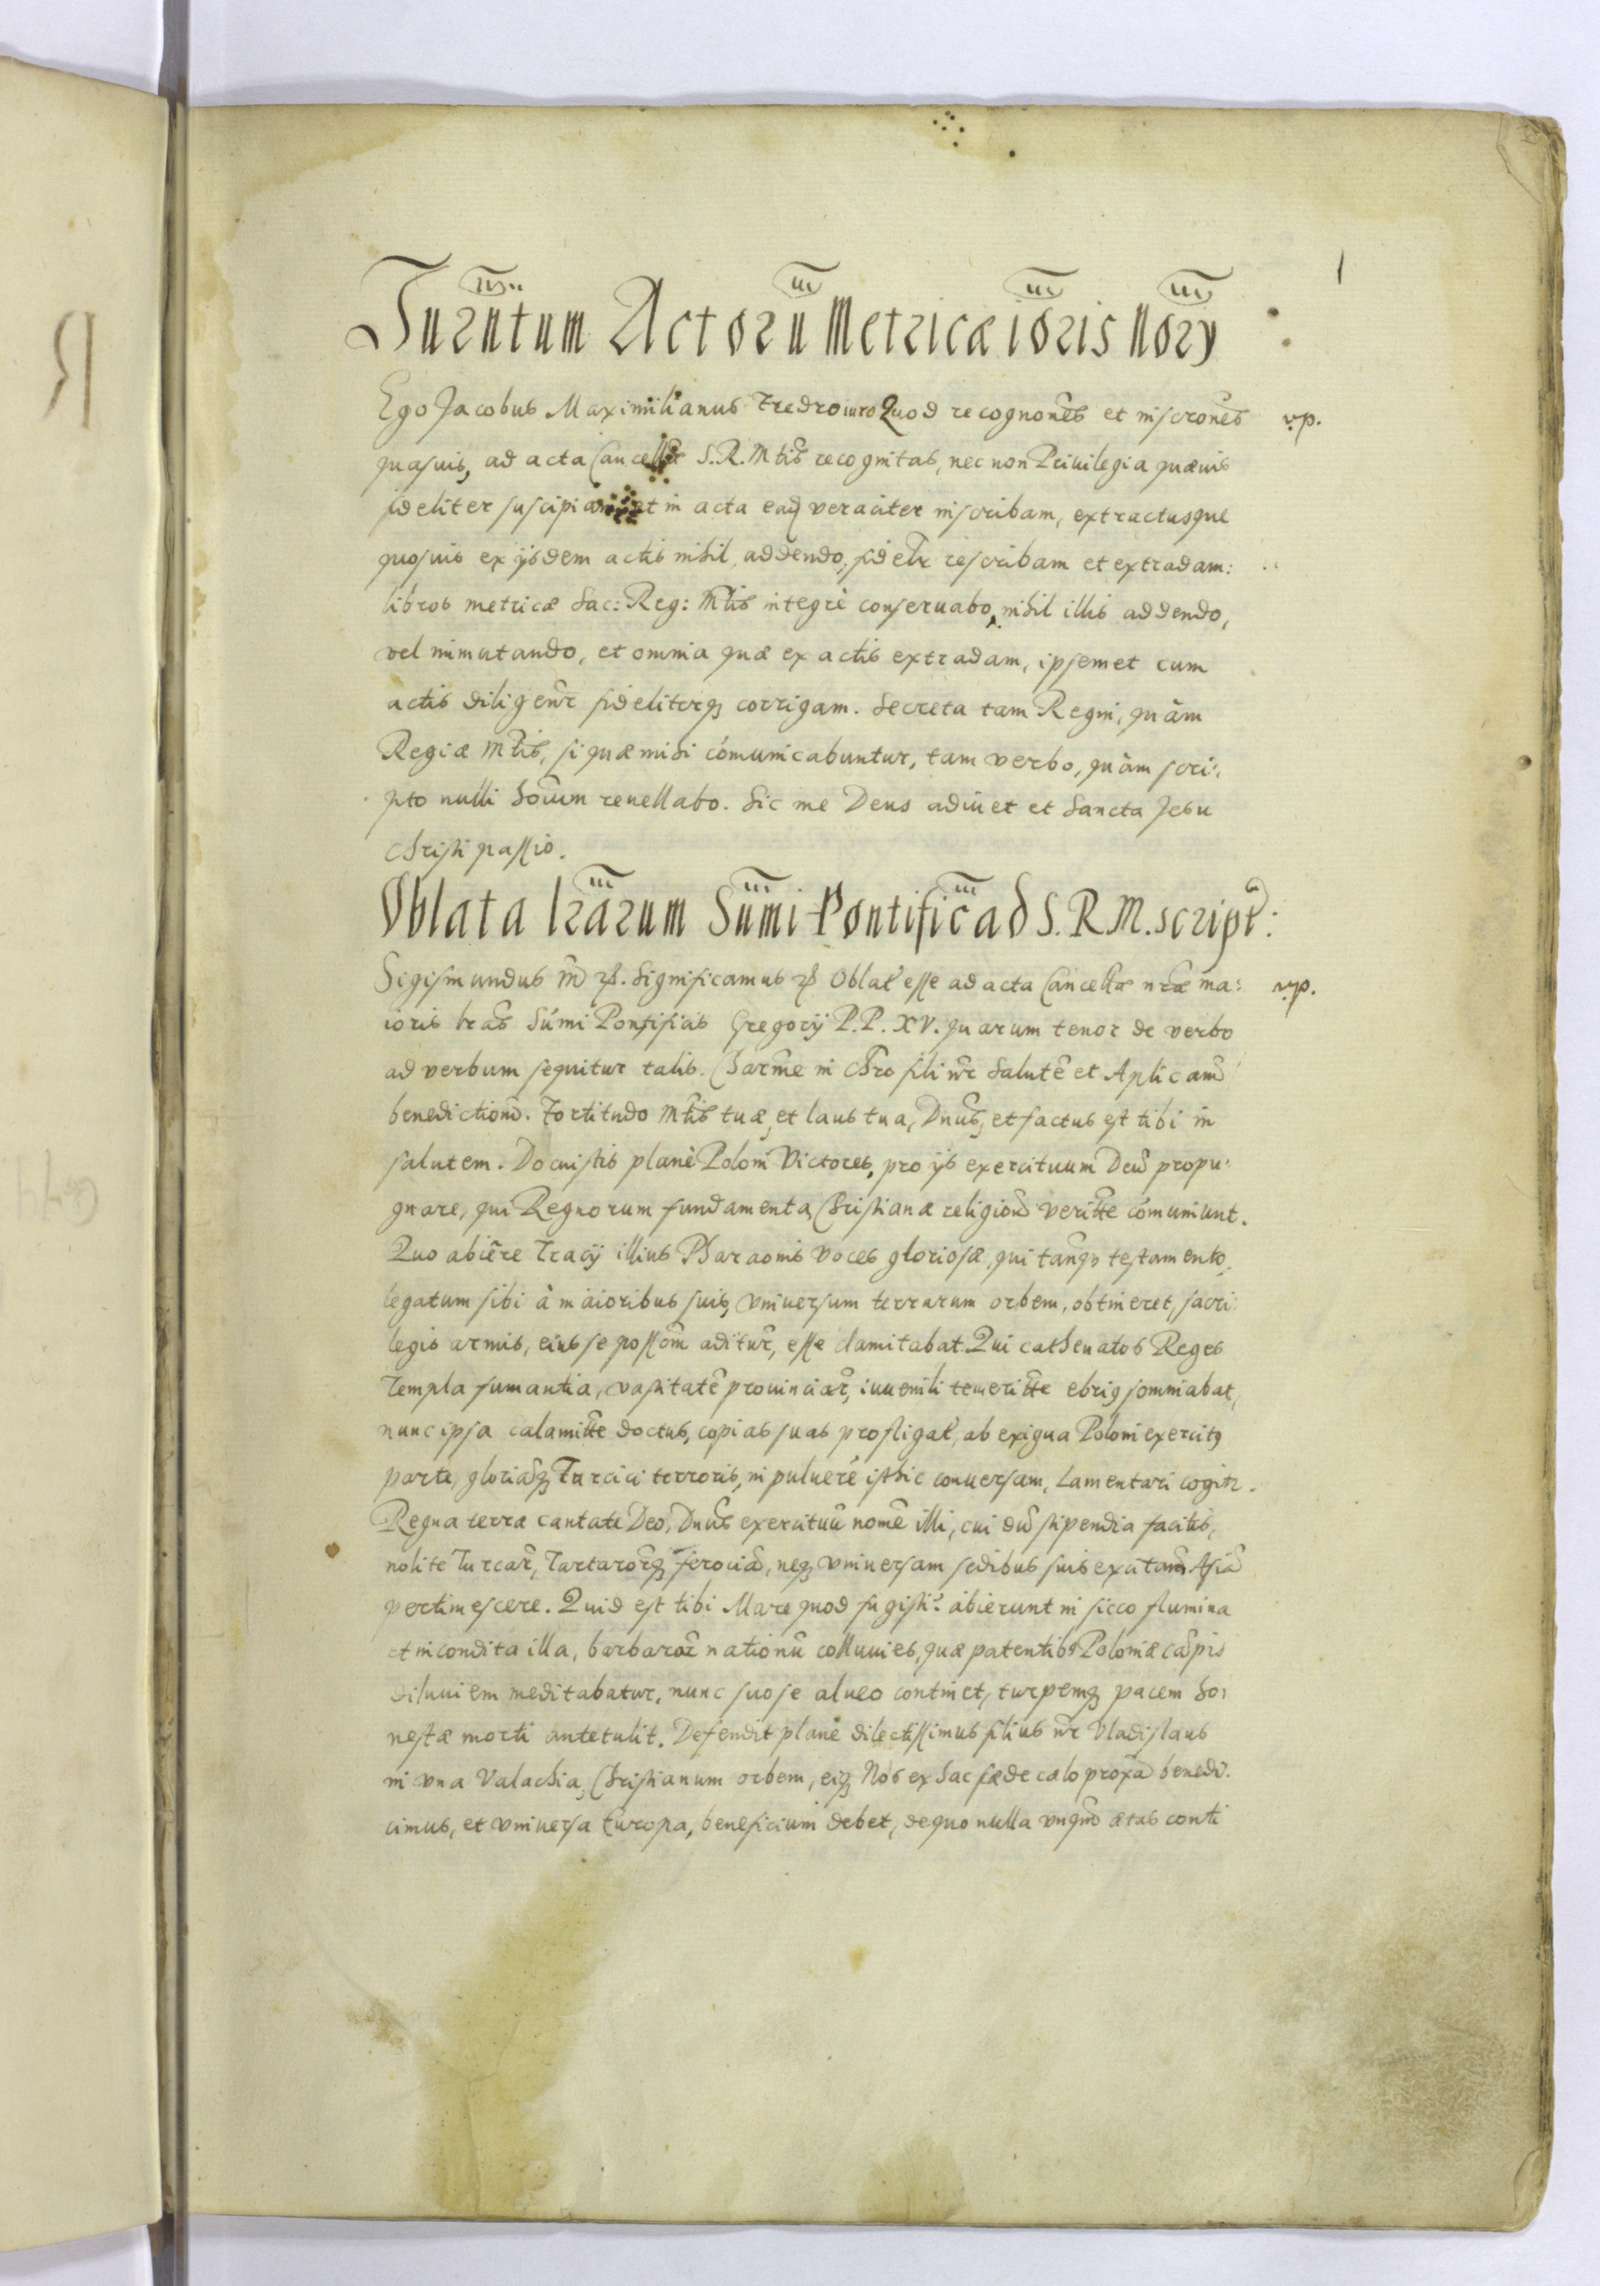 1
Jurntum Actorũ Metricæ ioris Nory
Ego Jacobus Maximilianus Fredro iuro Quod recognones et inscrones vp.
quasuis, ad acta Cancellæ S.R.Mtis recognitas, nec non Priuilegia quæuis
fideliter suscipiam et in acta eadẽ veraciter inscribam, extractusque
quosuis ex ijsdem actis nihil addendo, fidelr rescribam et extradam:
libros metricæ Sac: Reg: Mtis integrè conseruabo, nihil illis addendo,
vel immutando, et omnia quæ ex actis extradam, ipsemet cum
actis diligenr fideliterq corrigam. Secreta tam Regni, quàm
Regiæ Mtis, si quæ mihi cõmunicabuntur, tam verbo, quàm scri:
pto nulli horum reuellabo. Sic me Deus adiuet et Sancta Jesu
Christi passio.
Oblata lrarum Sumi Pontific ad S.R.M. script:
Sigismundus III etc. Significamus etc Oblat esse ad acta Cancellæ nræ ma: vp.
ioris lras Sũmi Pontificis Gregorij P.P. XV. quarum tenor de verbo
ad verbum sequitur talis. Charme in Chro fili nr Salutẽ et Aplicam
benedictionẽ. Fortitudo Mtis tuæ, et laus tua, Dnus, et factus est tibi in
salutem. Docuistis planè Poloni Victores, pro ijs exercituum Deũ propu:
gnare, qui Regnorum fundamenta Christianæ religionis veritte cõmuniunt.
Quo abiêre Tracij illius Pharaonis voces gloriosæ, qui tanq testamento
legatum sibi à maioribus suis, vniuersum terrarum orbem, obtineret, sacri
legis armis, eius se possom aditur, esse clamitabat. Qui cathenatos Reges
Templa fumantia, vastitatẽ prouinciar, iuuenili temeritte ebriq somniabat,
nunc ipsa calamitte doctus, copias suas profligat, ab exigua Poloni exercitq
parte, gloriaq Turcici terroris, in puluerẽ isthic conuersam, Lamentari cogitr.
Regna terræ cantate Deo, Dnus exercituũ nomẽ illi, cui dũ stipendia facitis,
nolite Turcar, Tartarorq ferociã, neq vniuersam sedibus suis excitam Asiã
pertimescere. Quid est tibi Mare quod fugisti? abierunt in sicco flumina
et incondita illa, barbaror nationũ colluuies, quæ patentibq Poloniæ cãpis
diluuiem meditabatur, nunc suo se alueo continet, turpemq pacem ho:
nestæ morti antetulit. Defendit planè dilectissimus filius nr Vladislaus
in vna Valachia, Christianum orbem, eiq Nos ex hac sæde cælo proxã benedi:
cimus, et vniuersa Europa, beneficium debet, de quo nulla vnqm ætas conti